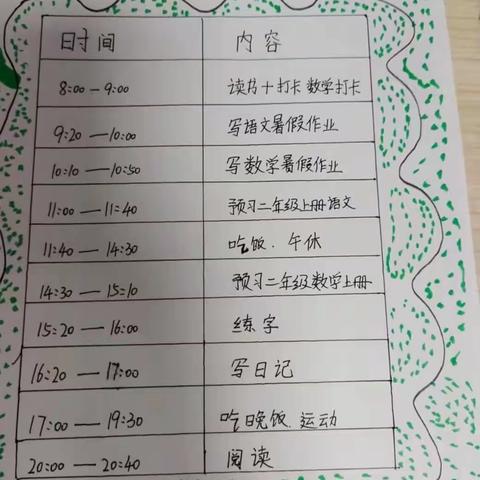 时间 内容
8:00 — 9:00 读书+打卡 数学打卡
9:20 — 10:00 写语文暑假作业
10:10 — 10:50 写数学暑假作业
11:00 — 11:40 预习二年级上册语文
11:40 — 14:30 吃饭、午休
14:30 — 15:10 预习二年级数学上册
15:20 — 16:00 练字
16:20 — 17:00 写日记
17:00 — 19:30 吃晚饭、运动
20:00 — 20:40 阅读